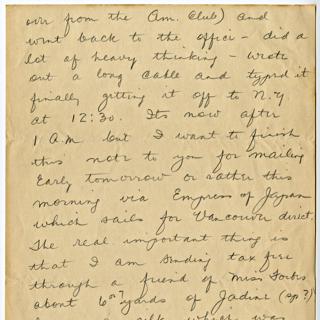 over from the Am. Club) and
went back to the office - did a
lot of heavy thinking - wrote
out a long cable and typed it
finally getting it off to N.Y
at 12:30. Its now after
1 A.M. but I want to finish
this note to you for mailing
Early tomorrow or rather this
morning via Empress of Japan
which sails for Vancouver direct.
The real important thing is
that I am sending tax free
through a friend of Miss Forbes
about 6 yards of Jadine (sp?)
silk which was